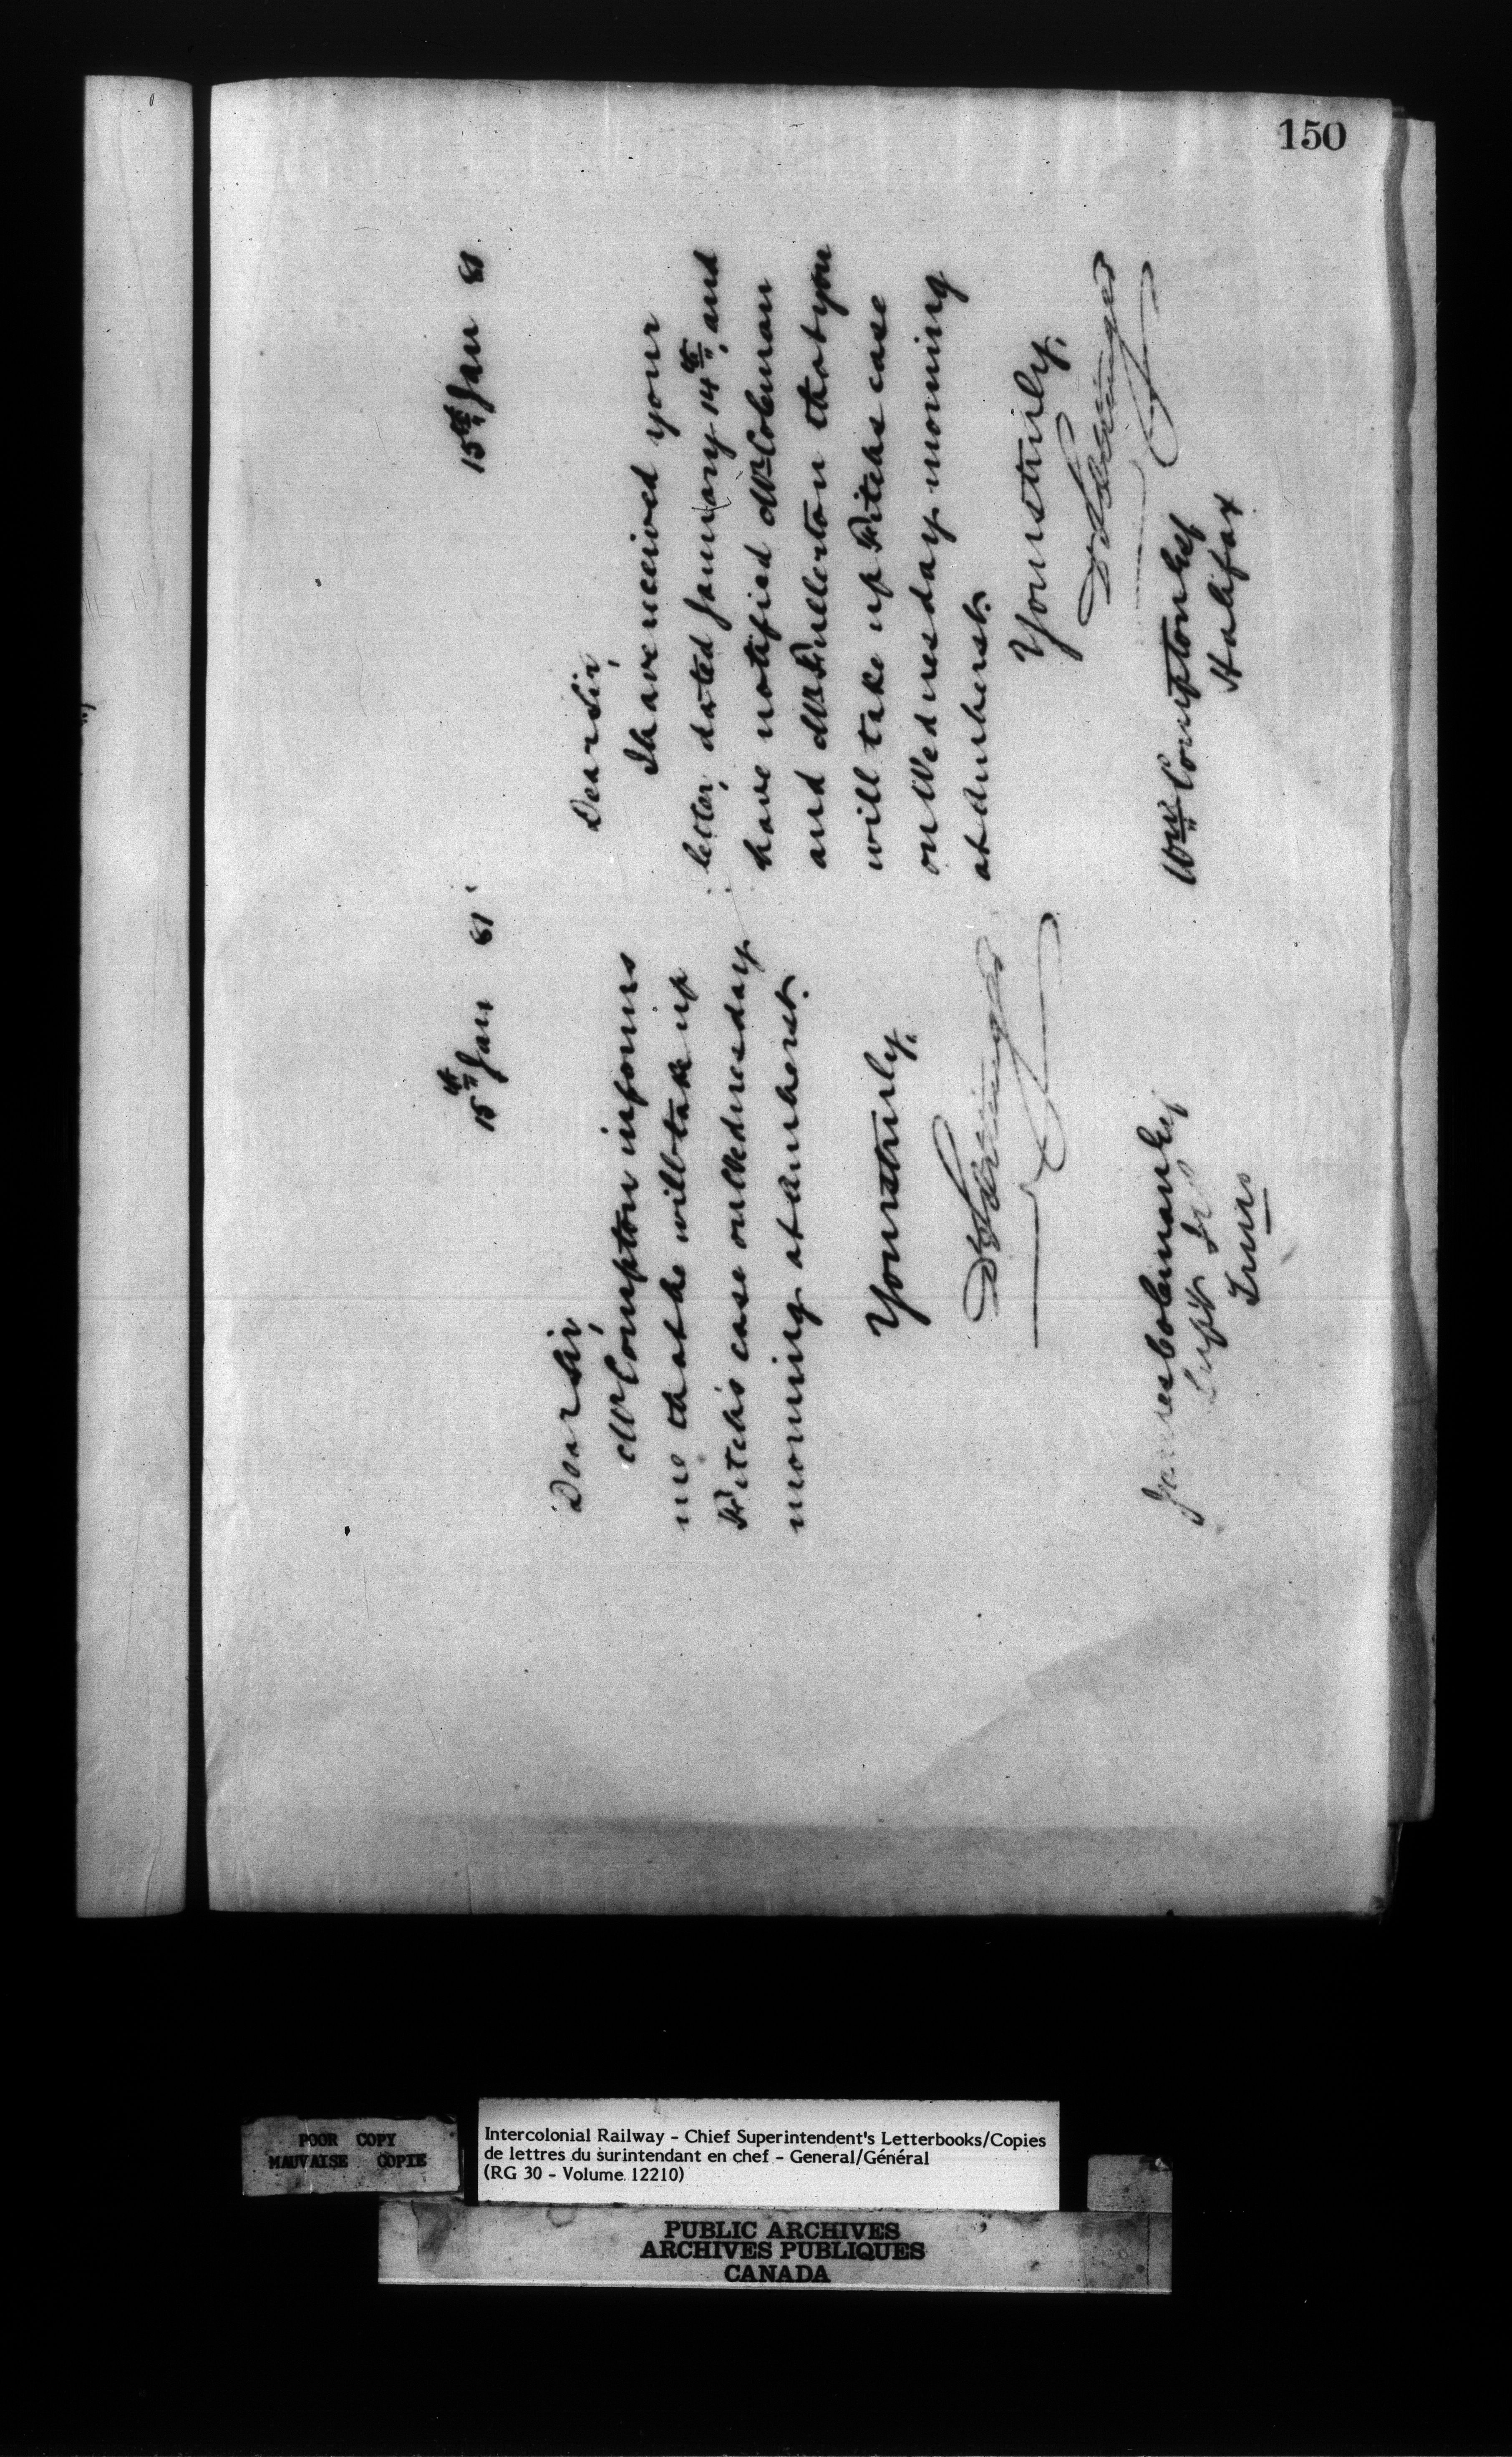 150
15th Jan 81
Dear Sir,
Mr Compton informs
me that he will take up
Fitch's case on Wednesday
morning at Amherst.
Yours truly,
D Pottinger
James Coleman Esq
Supt
Truro
15th Jan 81
Dear Sir,
I have received your
letter, dated January 14th, and
have notified Mr Coleman
and Mr Fullerton that you
will take up Fitchs case
on Wednesday morning
at Amherst.
Yours truly,
D Pottinger
Wm Compton Esq
Halifax
POOR COPY
MAUVAISE COPIE
Intercolonial Railway - Chief Superintendent's Letterbooks/Copies
de lettres du surintendant en chef - General/Général
(RG 30 - Volume 12210)
PUBLIC ARCHIVES
ARCHIVES PUBLIQUES
CANADA